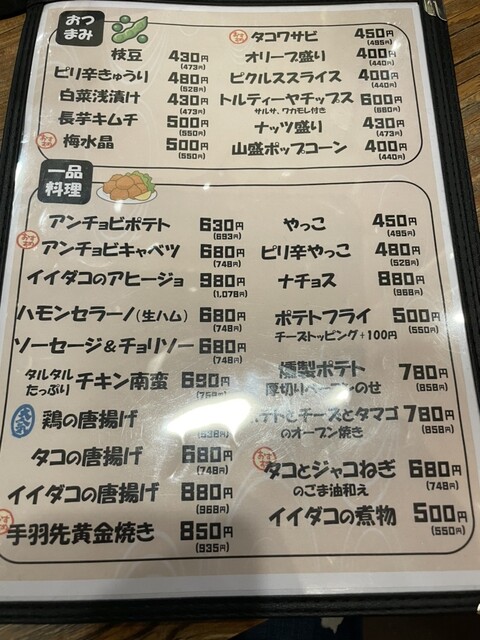 おつ
まみ
枝豆 430円
(473円)
ピリ辛きゅうり 480円
(528円)
白菜浅漬け 430円
(473円)
長芋キムチ 500円
(550円)
おすすめ 梅水晶 500円
(550円)
おすすめ タコワサビ 450円
(495円)
オリーブ盛り 400円
(440円)
ピクルススライス 400円
(440円)
トルティーヤチップス 600円
サルサ、ワカモレ付き (660円)
ナッツ盛り 430円
(473円)
山盛ポップコーン 400円
(440円)
一品
料理
アンチョビポテト 630円
(693円)
おすすめ アンチョビキャベツ 680円
(748円)
イイダコのアヒージョ 980円
(1,078円)
ハモンセラーノ(生ハム) 680円
(748円)
ソーセージ&チョリソー 680円
(748円)
タルタル
たっぷり チキン南蛮 690円
(759円)
鶏の唐揚げ
タコの唐揚げ 680円
(748円)
イイダコの唐揚げ 880円
(968円)
おすすめ 手羽先黄金焼き 850円
(935円)
やっこ 450円
(495円)
ピリ辛やっこ 480円
(528円)
ナチョス 880円
(968円)
ポテトフライ 500円
チーズトッピング+100円 (550円)
燻製ポテト 780円
厚切りベーコンのせ (858円)
ポテトとチーズとタマゴ 780円
のオーブン焼き (858円)
おすすめ タコとジャコねぎ 680円
のごま油和え (748円)
イイダコの煮物 500円
(550円)